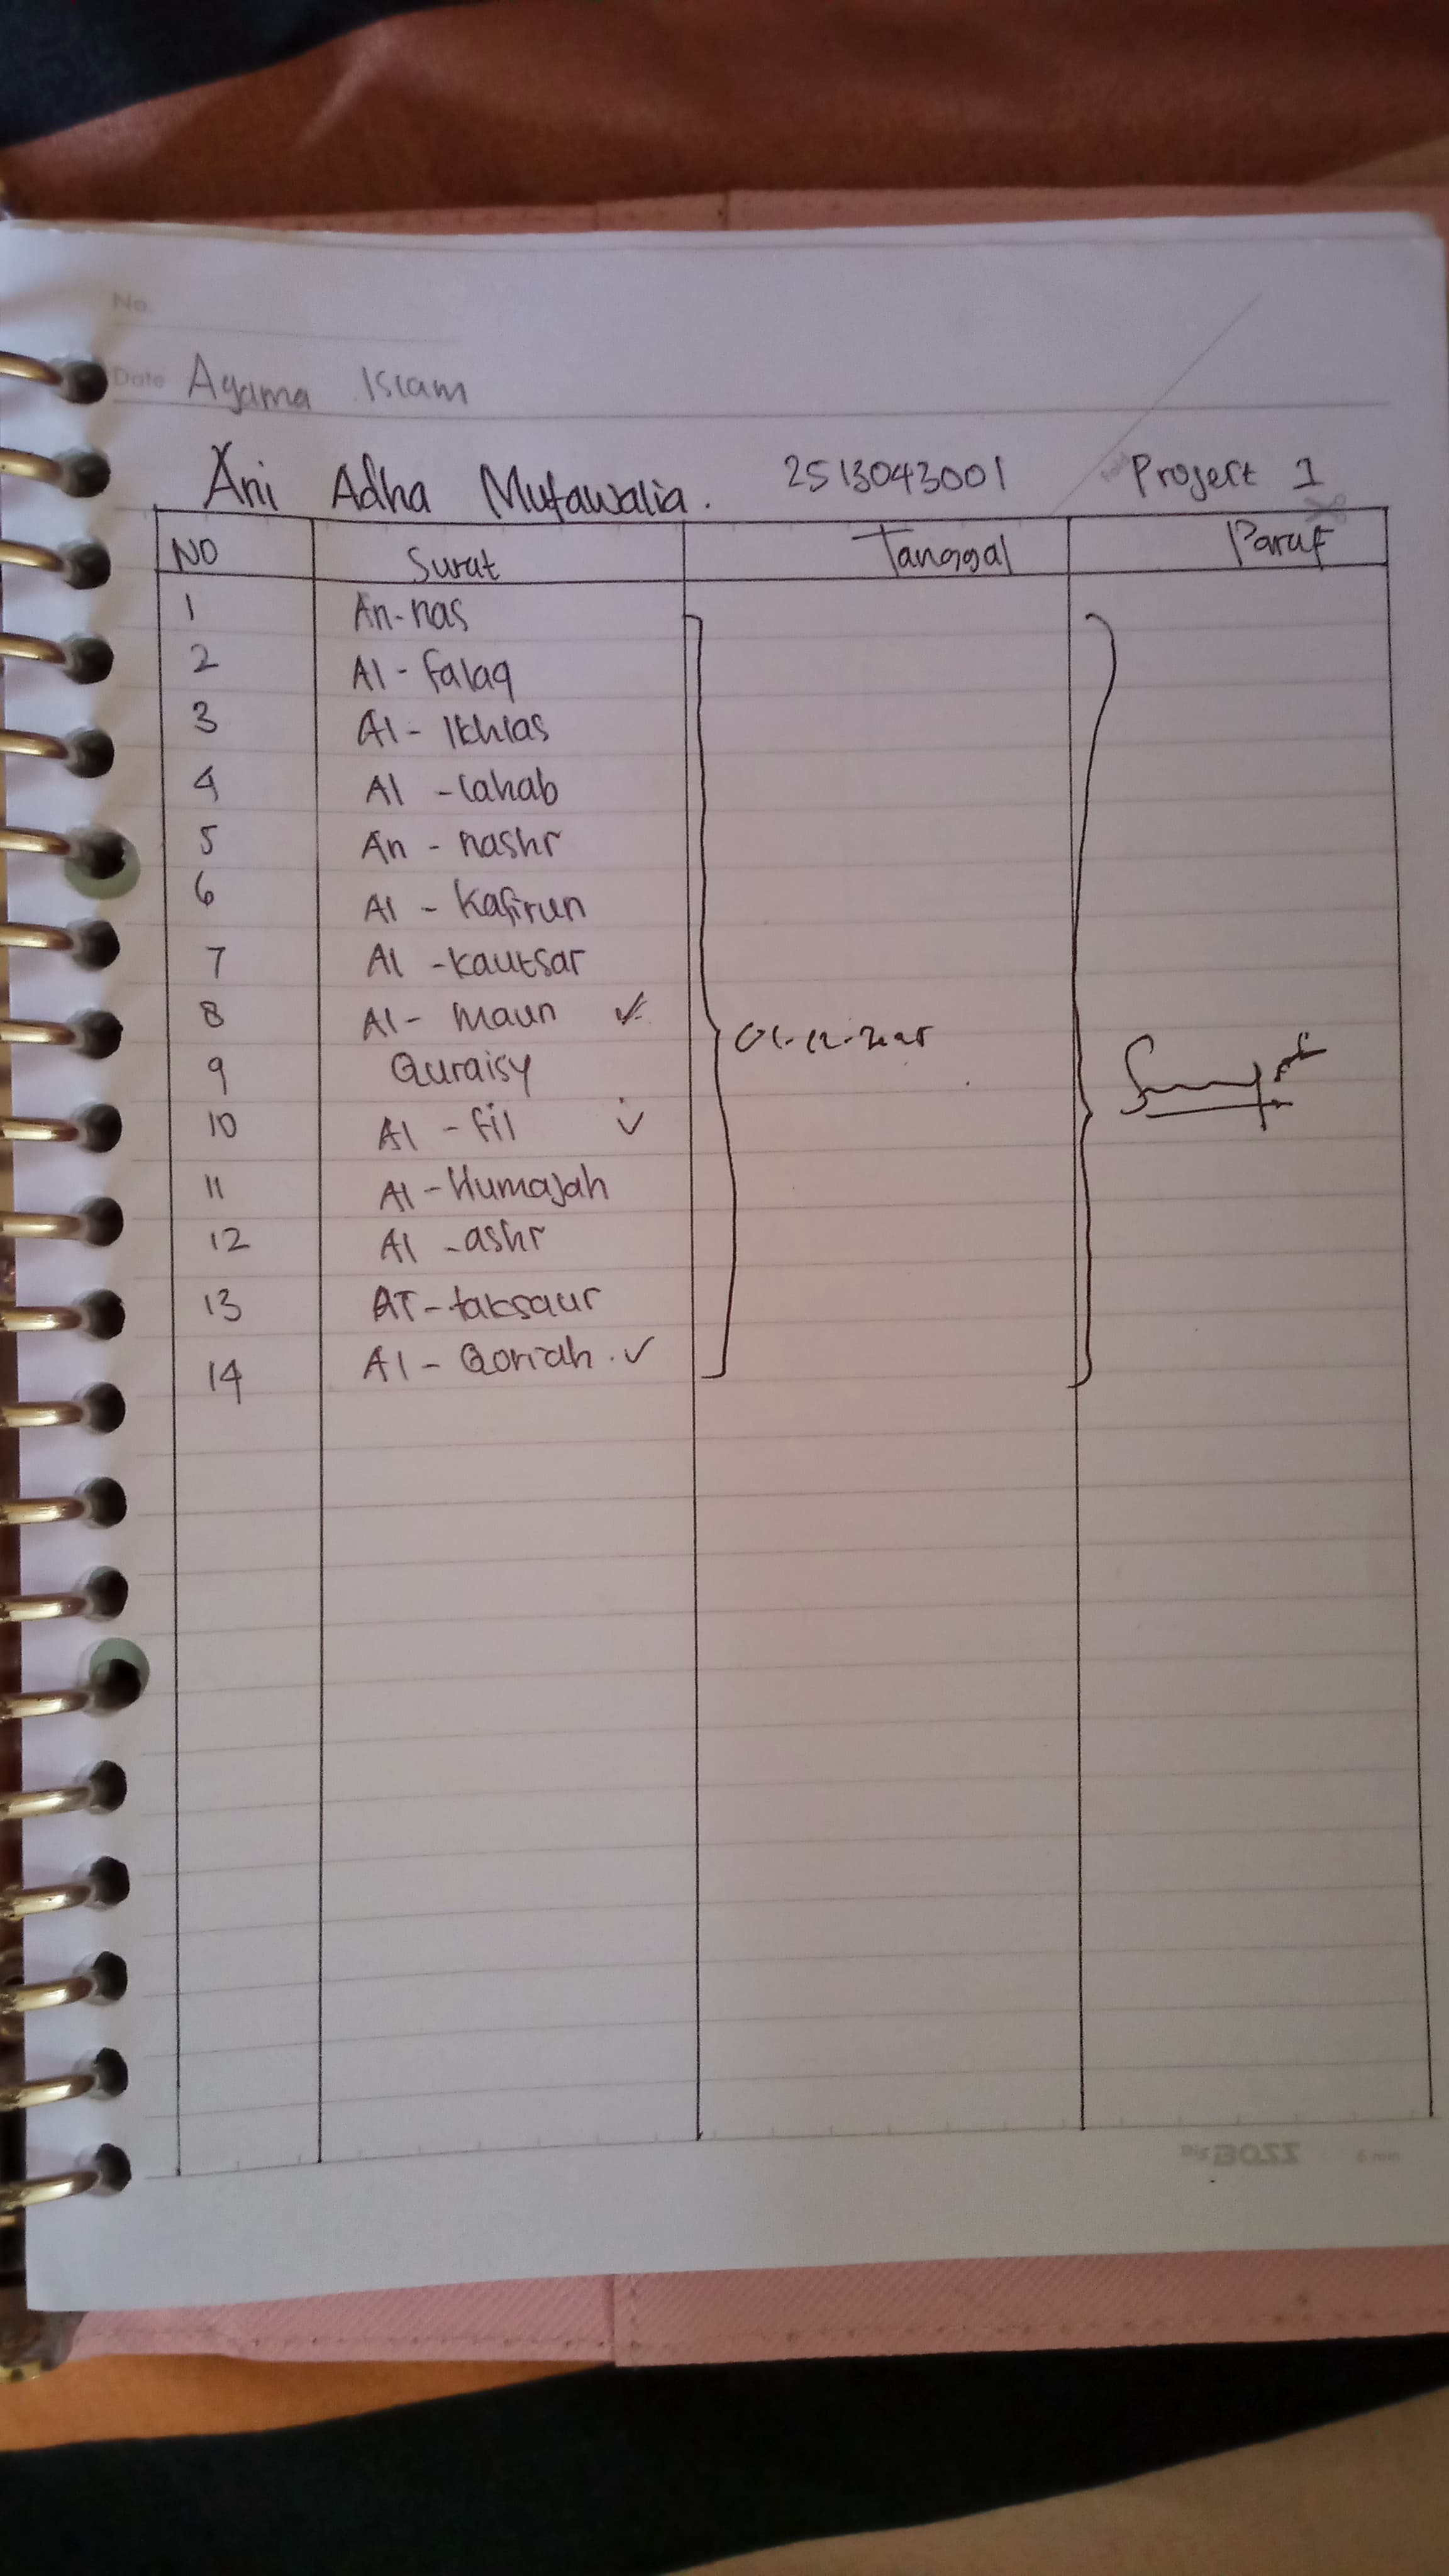 No.
Date Agama Islam
Ani Adha Mutawalia. 2513043001 Project 1
NO Surat Tanggal Paraf
1 An-nas
2 Al-falaq
3 Al-Ikhlas
4 Al-lahab
5 An-nashr
6 Al-Kafirun
7 Al-kautsar
8 Al-Maun ✓
01-12-2025
9 Quraisy
10 Al-fil ✓
11 Al-Humajah
12 Al-ashr
13 AT-taksaur
14 Al-Qoriah. ✓
BOSS 6 mm